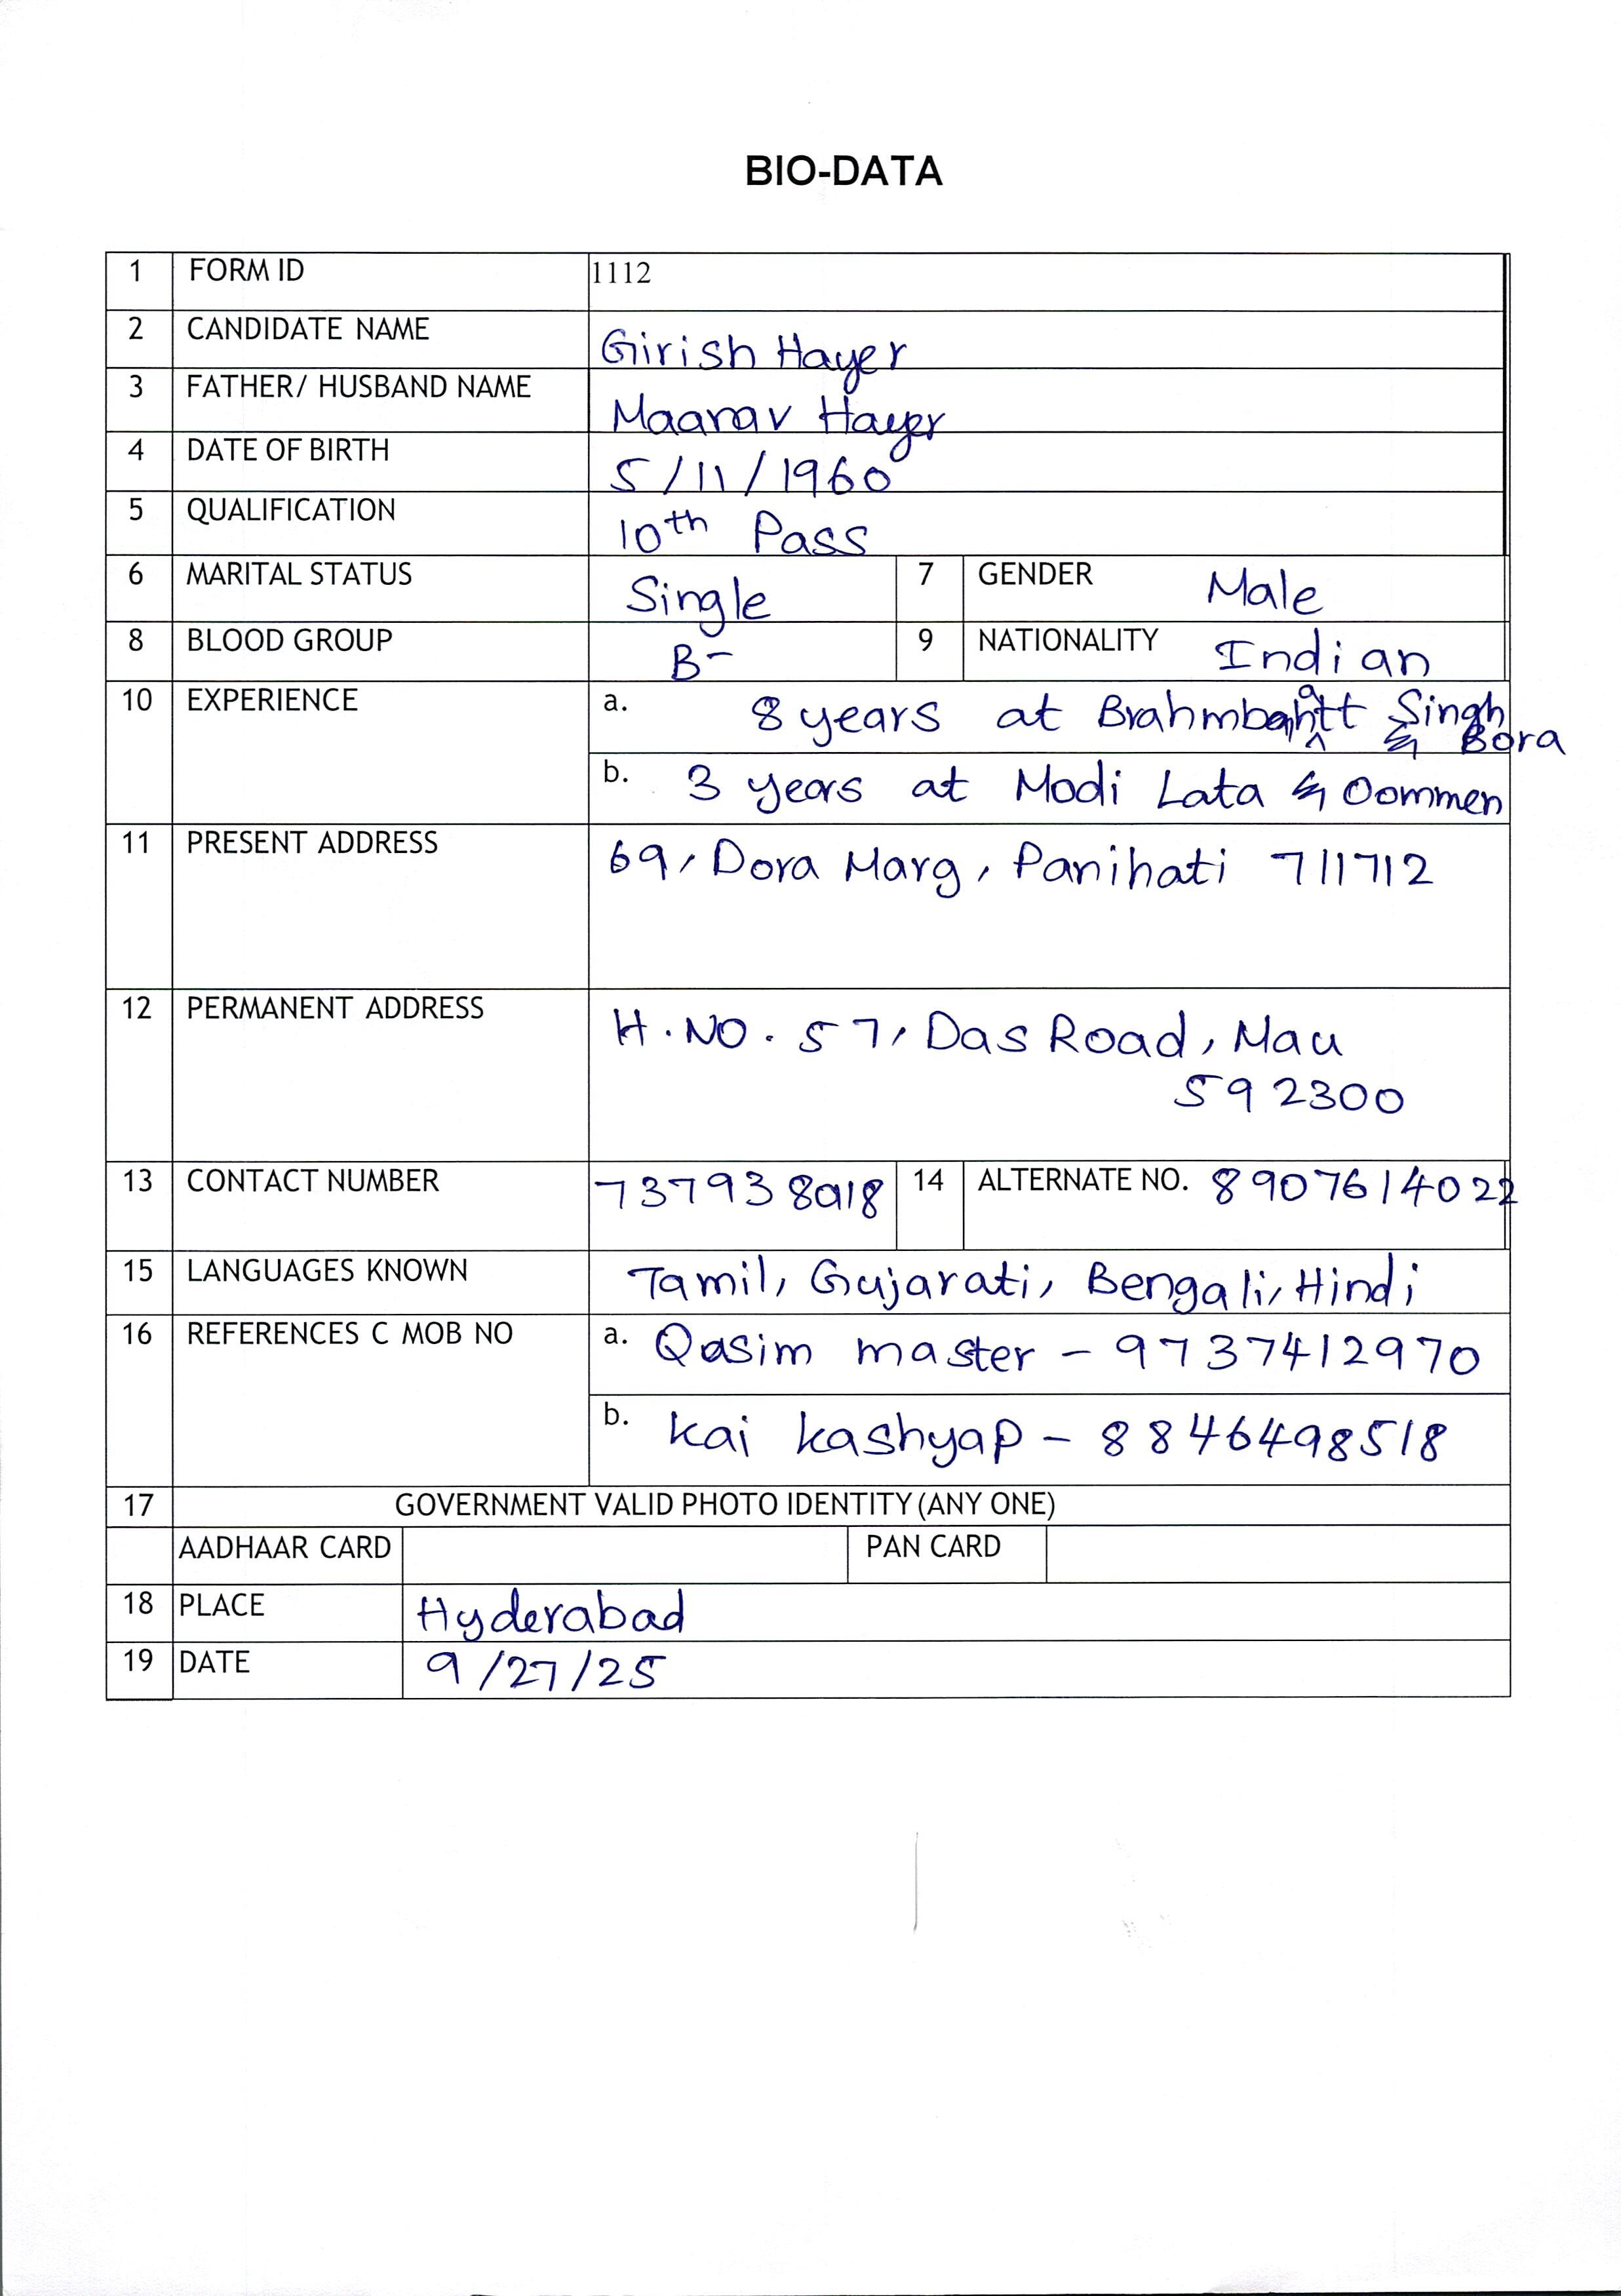 BIO-DATA
1 FORM ID 1112
2 CANDIDATE NAME Girish Hayer
3 FATHER/ HUSBAND NAME Maanav Hayer
4 DATE OF BIRTH 5/11/1960
5 QUALIFICATION 10th Pass
6 MARITAL STATUS Single 7 GENDER Male
8 BLOOD GROUP B- 9 NATIONALITY Indian
10 EXPERIENCE a. 8 years at Brahmbhatt Singh
& Bora
b. 3 years at Modi Lata & Oommen
11 PRESENT ADDRESS 69, Dora Marg, Panihati 711712
12 PERMANENT ADDRESS H.NO. 57, Das Road, Mau
592300
13 CONTACT NUMBER 737938918 14 ALTERNATE NO. 8907614022
15 LANGUAGES KNOWN Tamil, Gujarati, Bengali, Hindi
16 REFERENCES C MOB NO a. Qasim master - 9737412970
b. Kai Kashyap - 8846498518
17 GOVERNMENT VALID PHOTO IDENTITY (ANY ONE)
AADHAAR CARD PAN CARD
18 PLACE Hyderabad
19 DATE 9/27/25